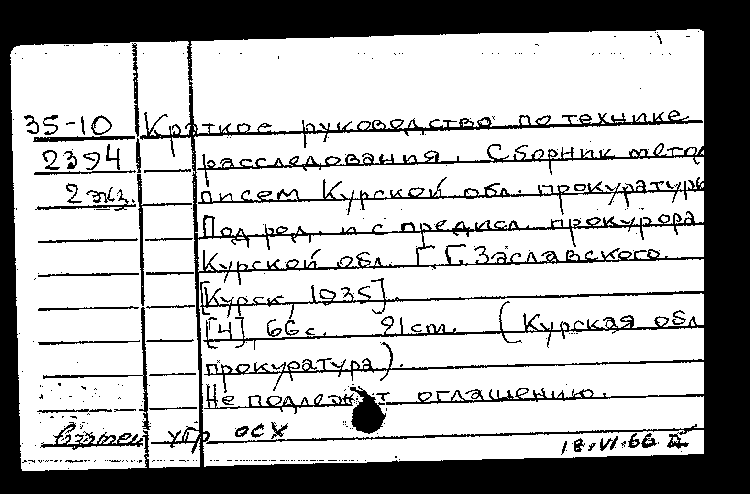 35-10 Краткое руководство по технике
2394 расследования. Сборник метод
2 экз. писем Курской обл. прокуратуры
Под ред. и с предисл. прокурора
Курской обл. Г. Г. Заславского.
[Курск, 1935].
[4], 66 с. 21 см. (Курская обл
прокуратура).
Не подлежит оглашению.
осх
18.VI.66